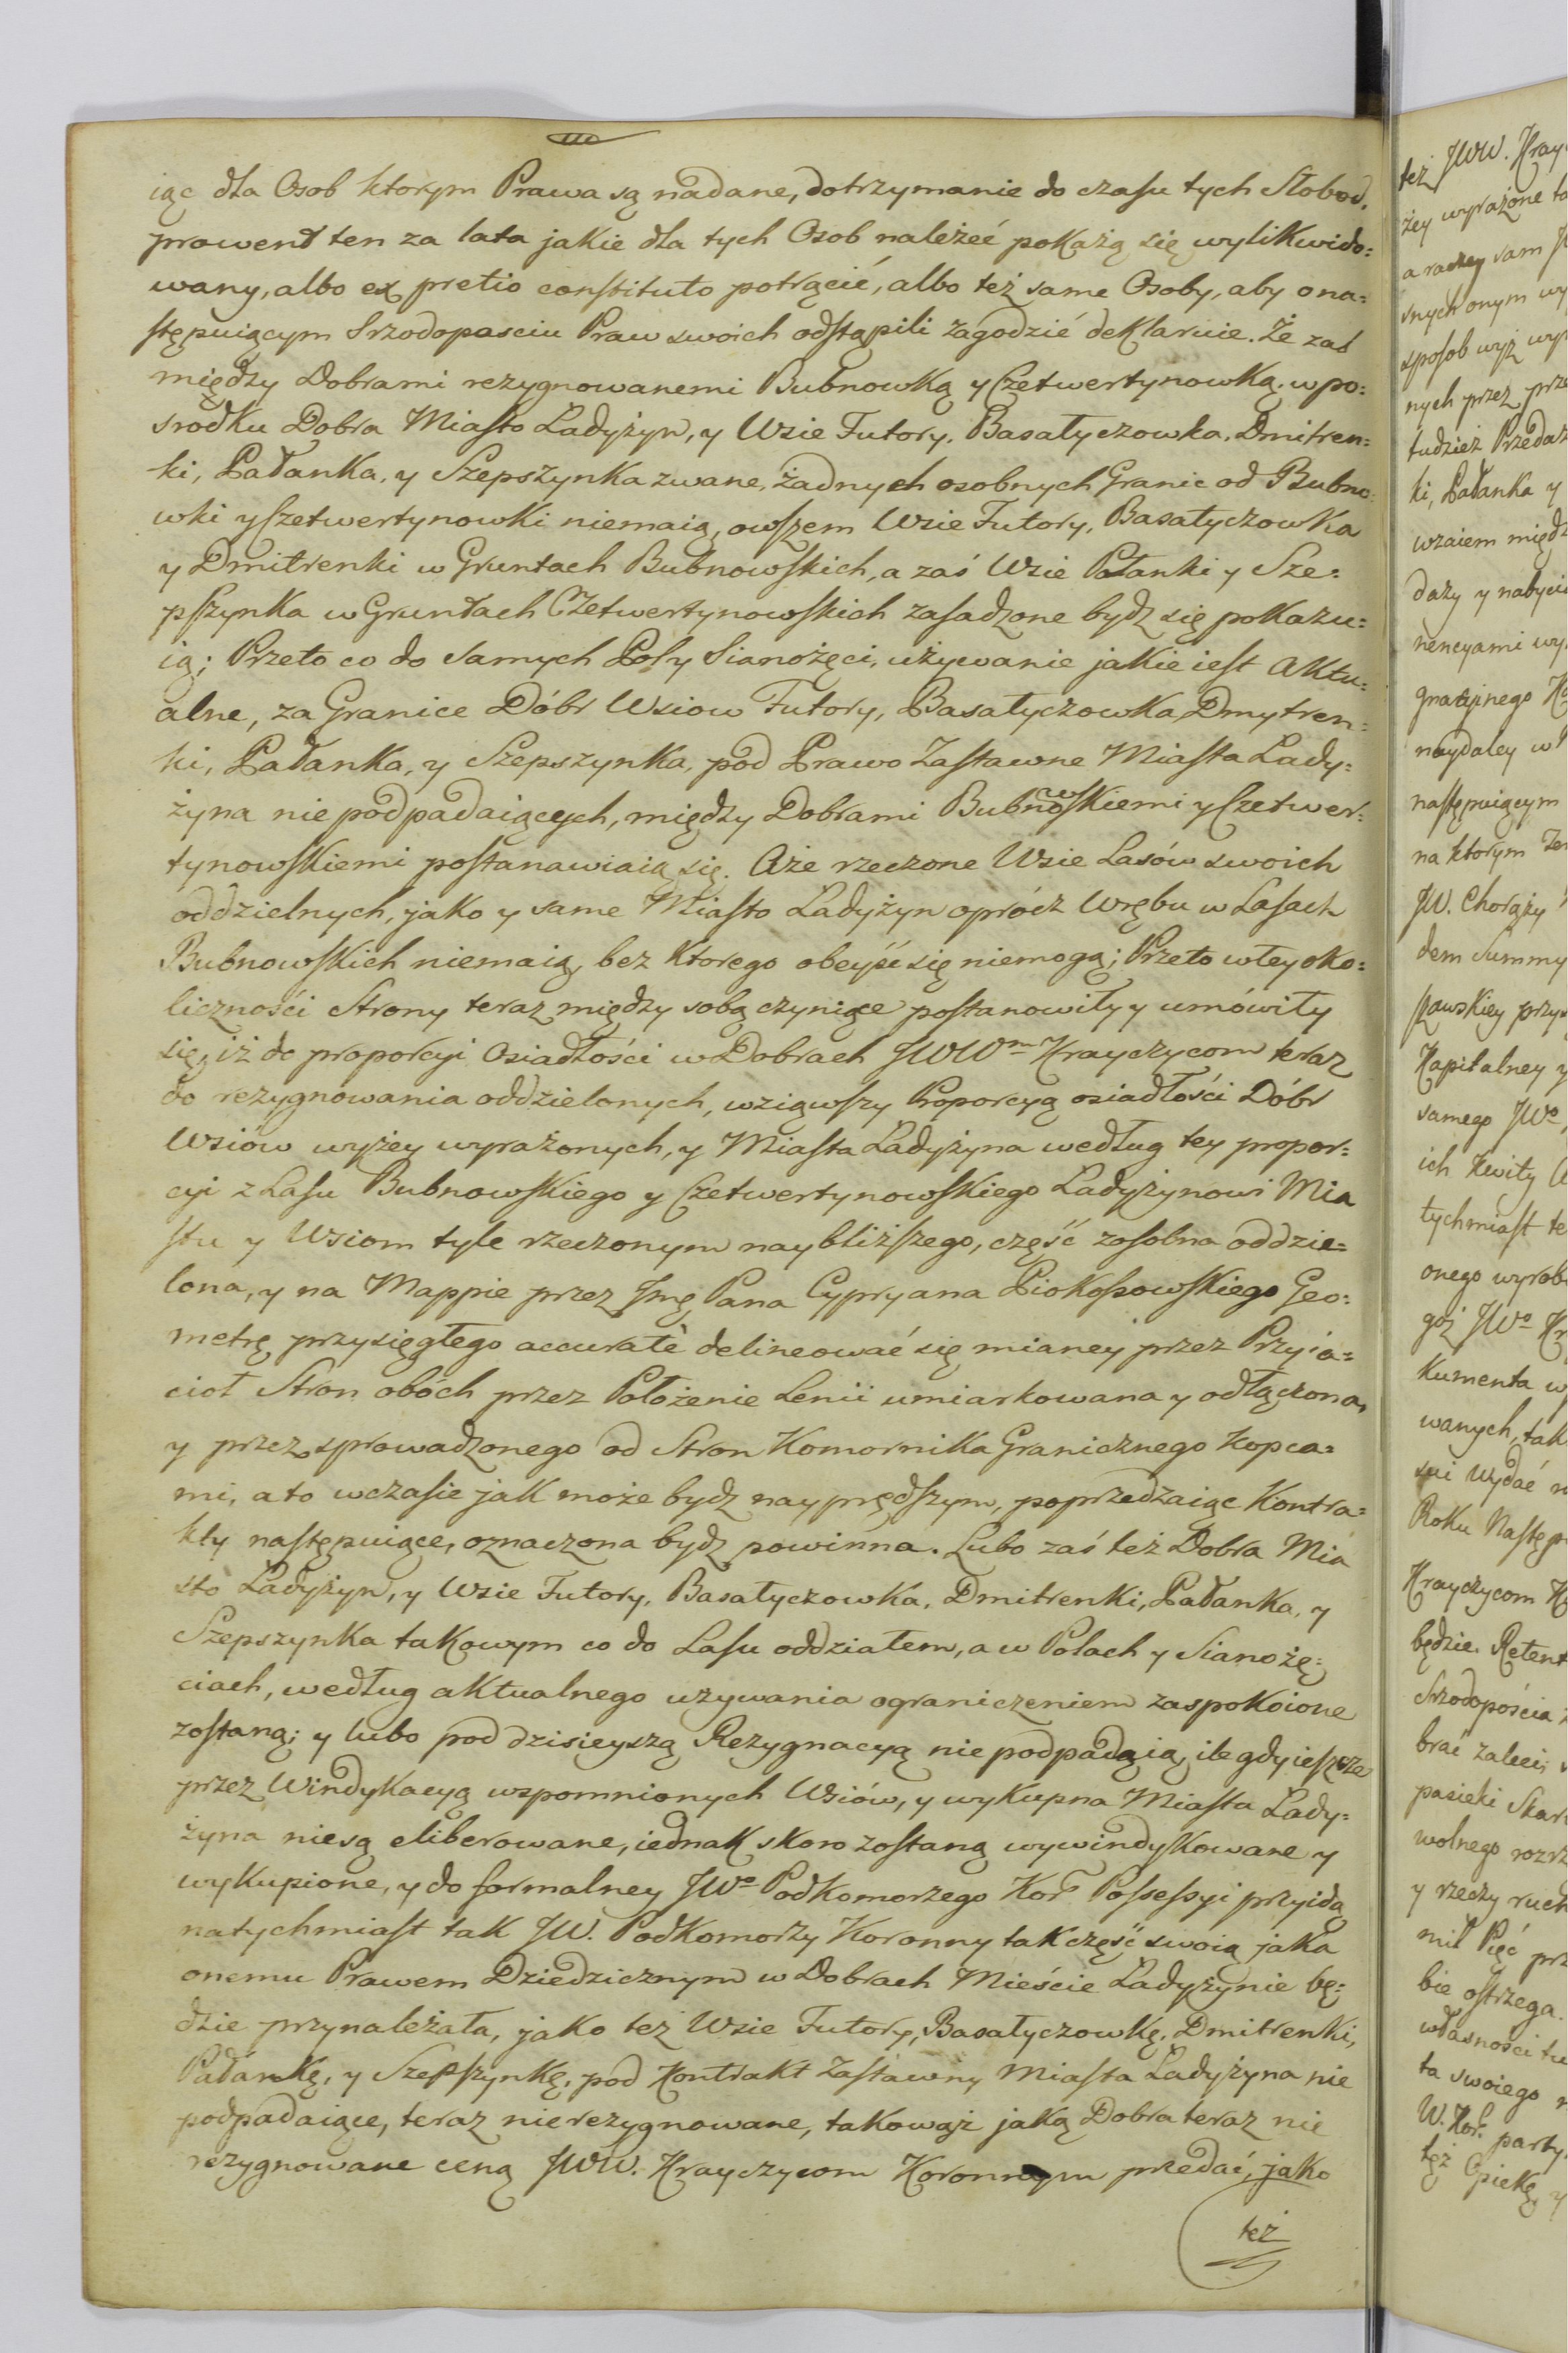 iąc dla Osob ktorym Prawa są nadane, dotrzymanie do czasu tych Słobod,
prowent ten za lata jakie dla tych Osob należeć pokażą się wylikwido:
wany, albo ex pretio constituto potrącić, albo też same Osoby, aby o na:
stępuiącym Srzodoposciu Praw swoich odstąpili zagodzić deklaruie. Że zaś
między Dobrami rezygnowanemi Bubnowką y Czetwertynowką, w po:
srodku Dobra Miasto Ładyżyn, y Wsie Futory, Basałyczowka, Dmitren:
ki, Pałanka, y Szepszynka zwane, żadnych osobnych Granic od Bubno:
wki y Czetwertynowki niemaią, owszem Wsie Futory, Basałyczowka
y Dmitrenki w Gruntach Bubnowskich, a zaś Wsie Pałanki y Sze:
pszynka w Gruntach Czetwertynowskich zasadzone bydz się pokazu:
ią; Przeto co do samych Pol y Sianożęci, używanie jakie iest Aktu:
alne, za Granice Dóbr Wsiow Futory, Basałyczowka, Dmytren:
ki, Pałanka, y Szepszynka, pod Prawo Zastawne Miasta Łady:
żyna nie podpadaiących, między Dobrami Bubnowskiemi y Czetwer:
tynowskiemi postanawiaią się. A że rzeczone Wsie Lasów swoich
oddzielnych, jako y same Miasto Ładyżyn oprócz Wrębu w Lasach
Bubnowskich niemaią, bez ktorego obeyść się niemogą; Przeto w tey oko:
liczności Strony teraz między sobą czyniące postanowiły y umówiły
się, iż do proporcyi Osiadłości w Dobrach JWW<sup>m</sup> Krayczycom teraz
do rezygnowania oddzielonych, wziąwszy Proporcyą osiadłości Dóbr
Wsiow wyżey wyrażonych, y Miasta Ładyżyna według tey propor:
cyi z Lasu Bubnowskiego y Czetwertynowskiego Ładyżynowi Mia
stu y Wsiom tyle rzeczonym naybliższego, część zosobna oddzie=
lona, y na Mappie przez Jmć Pana Cypryana Piokossowskiego Geo:
metrę przysięgłego accuratè delineować się mianey przez Przyia=
cioł Stron obóch przez Położenie Lenii umiarkowana y odłączona,
y przez sprowadzonego od Stron Komornika Granicznego Kopca=
mi, a to w czasie jak może bydz nayprędszym, poprzedzaiąc Kontra=
kty następuiące, oznaczona bydz powinna. Lubo zaś też Dobra Mia
sto Ładyżyn, y Wsie Futory, Basałyczowka, Dmitrenki, Pałanka, y
Szepszynka takowym co do Lasu oddziałem, a w Polach y Sianożę:
ciach, według aktualnego używania ograniczeniem zaspokoione
zostaną; y lubo pod dzisieyszą Rezygnacyą nie podpadaią, ile gdy ieszcze
przez Windykacyą wspomnionych Wsiów, y wykupna Miasta Łady:
żyna niesą eliberowane, iednak skoro zostaną wywindykowane y
wykupione, y do formalney JW<sup>o</sup> Podkomorzego Kor Possessyi przyidą
natychmiast tak JW. Podkomorzy Koronny tak część swoią jaka
onemu Prawem Dziedzicznym w Dobrach Mieście Ładyżynie bę:
dzie przynależała, jako też Wsie Futory, Basałyczowkę, Dmitrenki,
Pałankę, y Szepszynkę, pod Kontrakt Zastawny Miasta Ładyżyna nie
podpadaiące, teraz nierezygnowane, takowąż jaką Dobra teraz nie
rezygnowane ceną JWW. Krayczycom Koronnym przedać, jako
też
też JWW. Kray
żey wyrażone
a raczey sam
snych onym wy
sposob wyż wy
nych przez prze
tudzież Przedaż
ki, Pałanka y
wzaiem międz
daży y nabyci
nencyami wy
gnacyinego
naydaley w
następuiącym
na ktorym
JW. Chorąży
dem Summy
szawskiey przy
Kapitalney y
samego JW<sup>o</sup>
ich Kwity
tychmiast te
onego wyrob
goż JW<sup>o</sup> Kr
kumenta w
wanych, tak
wydać
Roku Następ
Krayczycom
będzie. Retent
Srzodopościa
brać zaleci,
pasieki Skar
wolnego rozrz
y rzeczy ruch
mil Pięć prz
bie ostrzega.
własności
ta swoiego
W. Kor. party
też Opiekę y